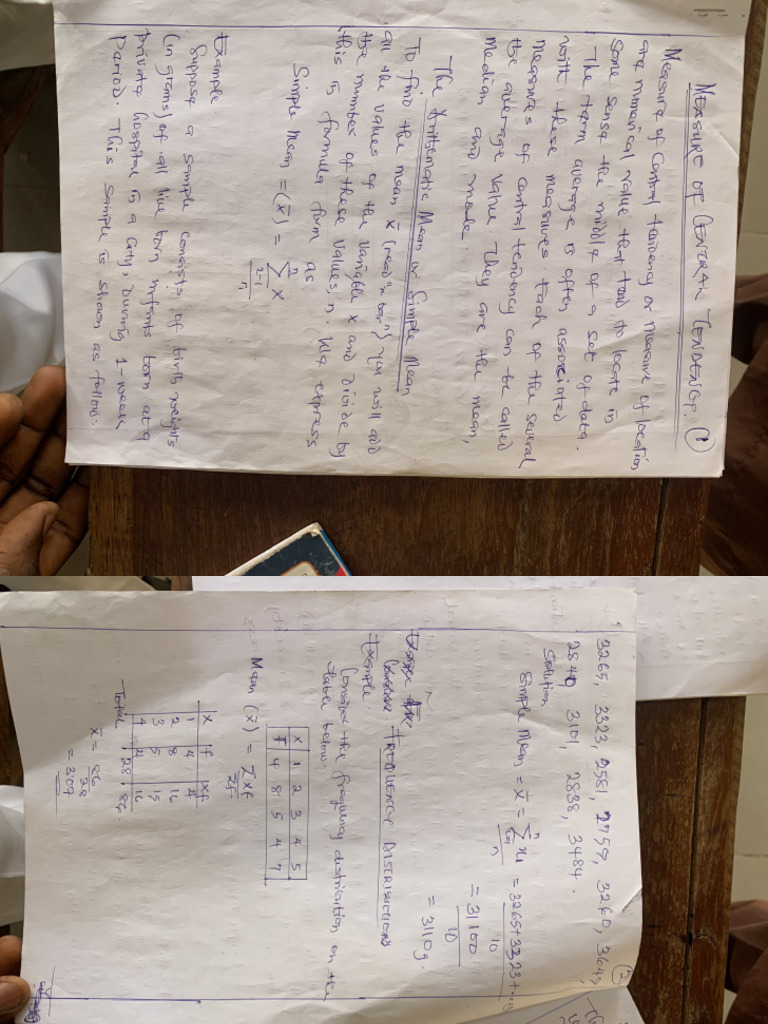 MEASURE OF CENTRAL TENDENCY. (1)
Measure of Central tendency or measure of location
are numerical value that tend to locate in
some sense the middle of a set of data.
The term average is often associated
with these measures. Each of the several
measures of central tendency can be called
the average value. They are the mean,
median and mode.
The Arithmetic Mean or Simple Mean
To find the mean x̄ (read "x bar") you will add
all the values of the variable x and divide by
the number of these values, n. We express
this in formula form as
Simple mean = (x̄) = n∑i=1 x
n
Example
Suppose a sample consists of birth weights
(in grams) of all live born infants born at a
private hospital in a city, during 1-week
Period. This sample is shown as follow:
(2)
3265, 3323, 2581, 2759, 3260, 3649,
2840 3101, 2838, 3484.
Solution
Simple mean = x̄ = n∑i=1 xi = 3265+3323+...
n 10
= 31100
10
= 3110g.
FREQUENCY DISTRIBUTIONS
Example
Consider the frequency distribution on the
table below:
X 1 2 3 4 5
F 4 8 5 4 7
Mean (x̄) = ∑xf
∑f
x f xf
1 4 4
2 8 16
3 5 15
4 4 16
Total 28 86
x̄ = 86
28
= 3.07